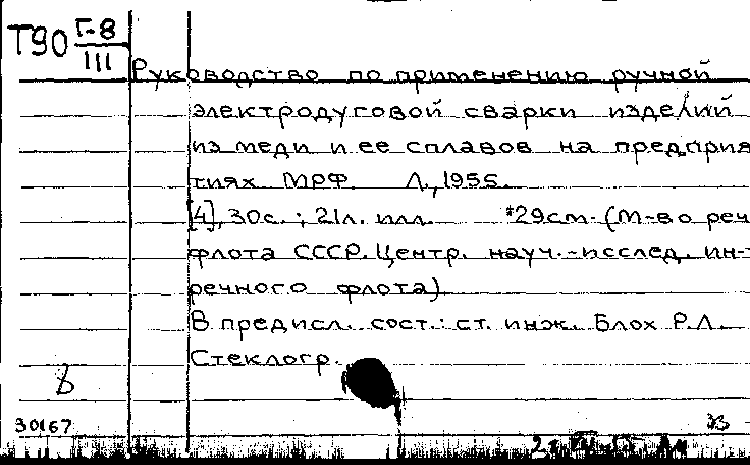 Т90 Г-8
III
Руководство по применению ручной
электродуговой сварки изделий
из меди и ее сплавов на предприя
тиях МРФ. Л., 1955.
[4], 30с.; 21л. илл. *29см. (М-во реч
флота СССР. Центр. науч.-исслед. ин-т
речного флота)
В предисл. сост.: ст. инж. Блох Р.Л.
Стеклогр.
30167